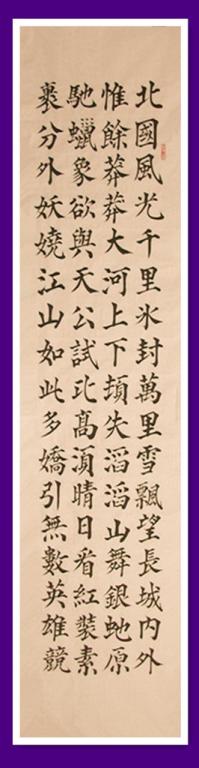 北國風光千里氷封萬里雪飄望長城內外
惟餘莽莽大河上下頓失滔滔山舞銀虵原
馳蠟象欲與天公試比高湏晴日看紅裝素
裹分外妖嬈江山如此多嬌引無數英雄競